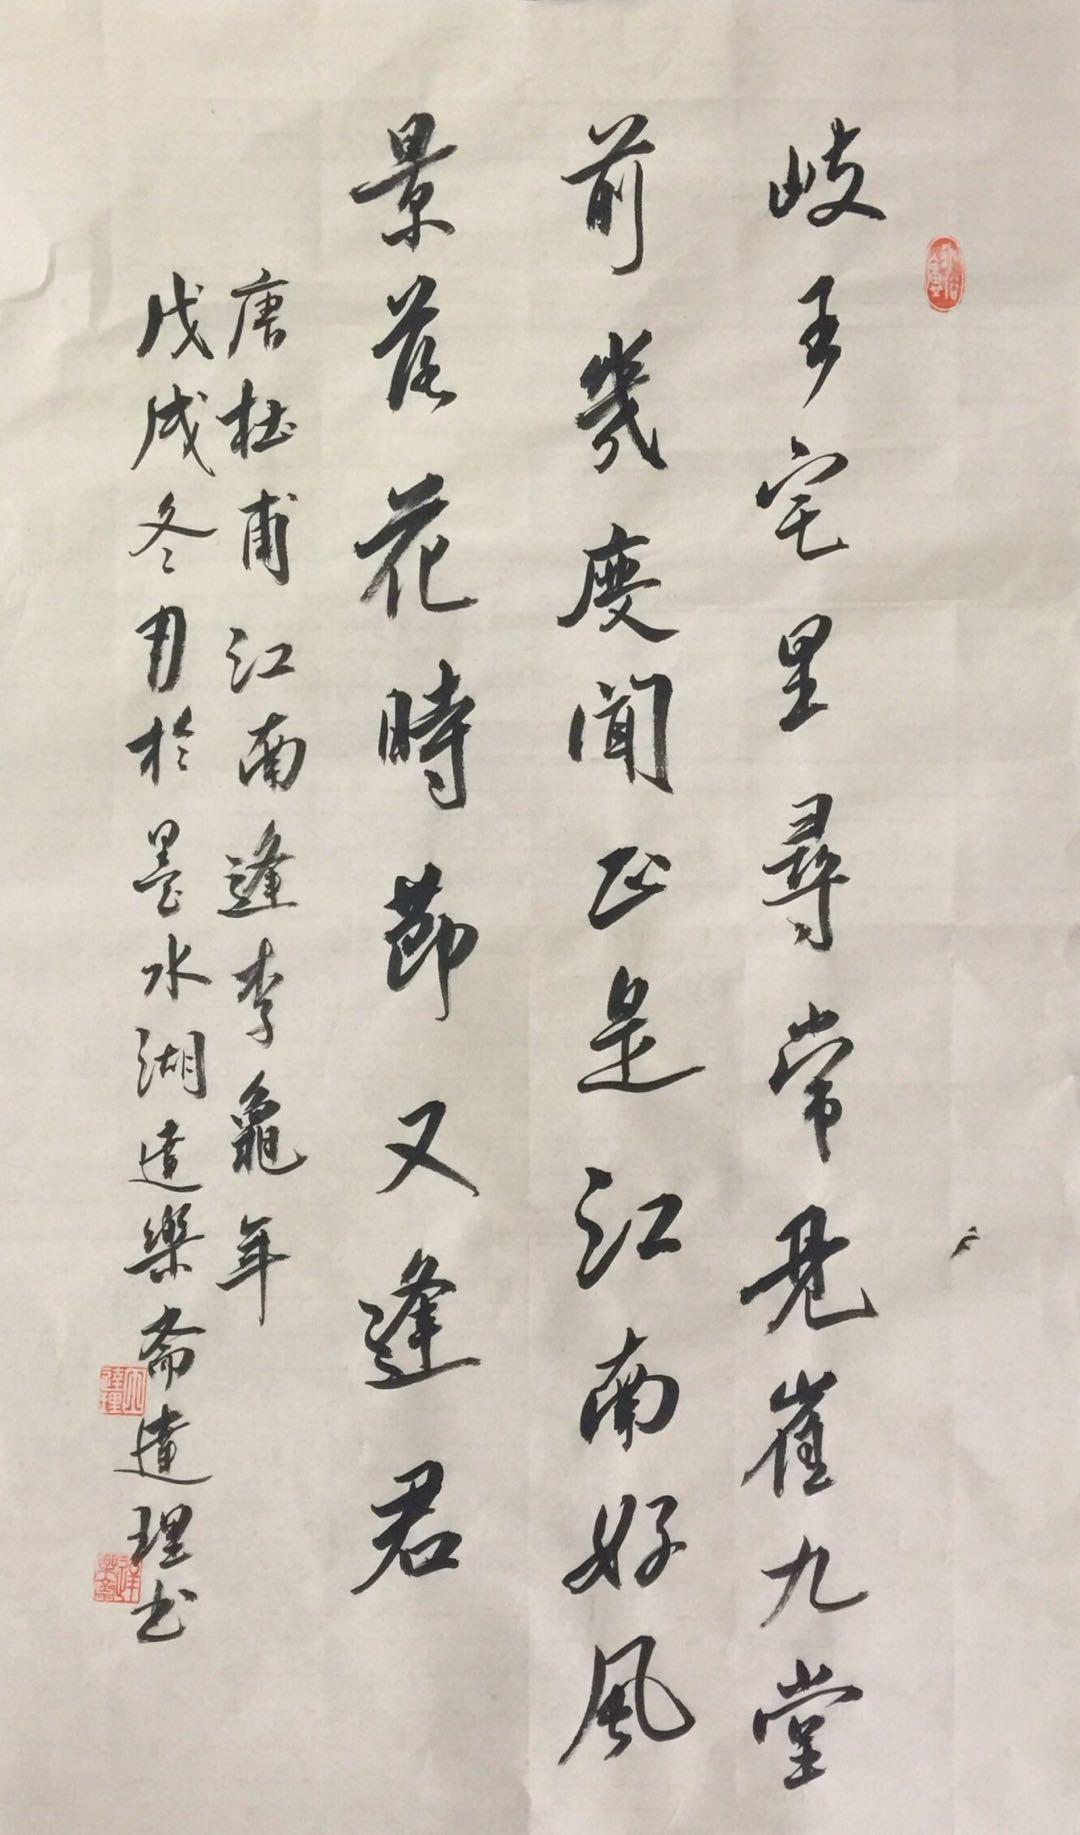 岐王宅里尋常見崔九堂
前幾度聞正是江南好風
景落花時節又逢君
唐杜甫江南逢李龜年
戊戌冬月於墨水湖達樂齋達理书